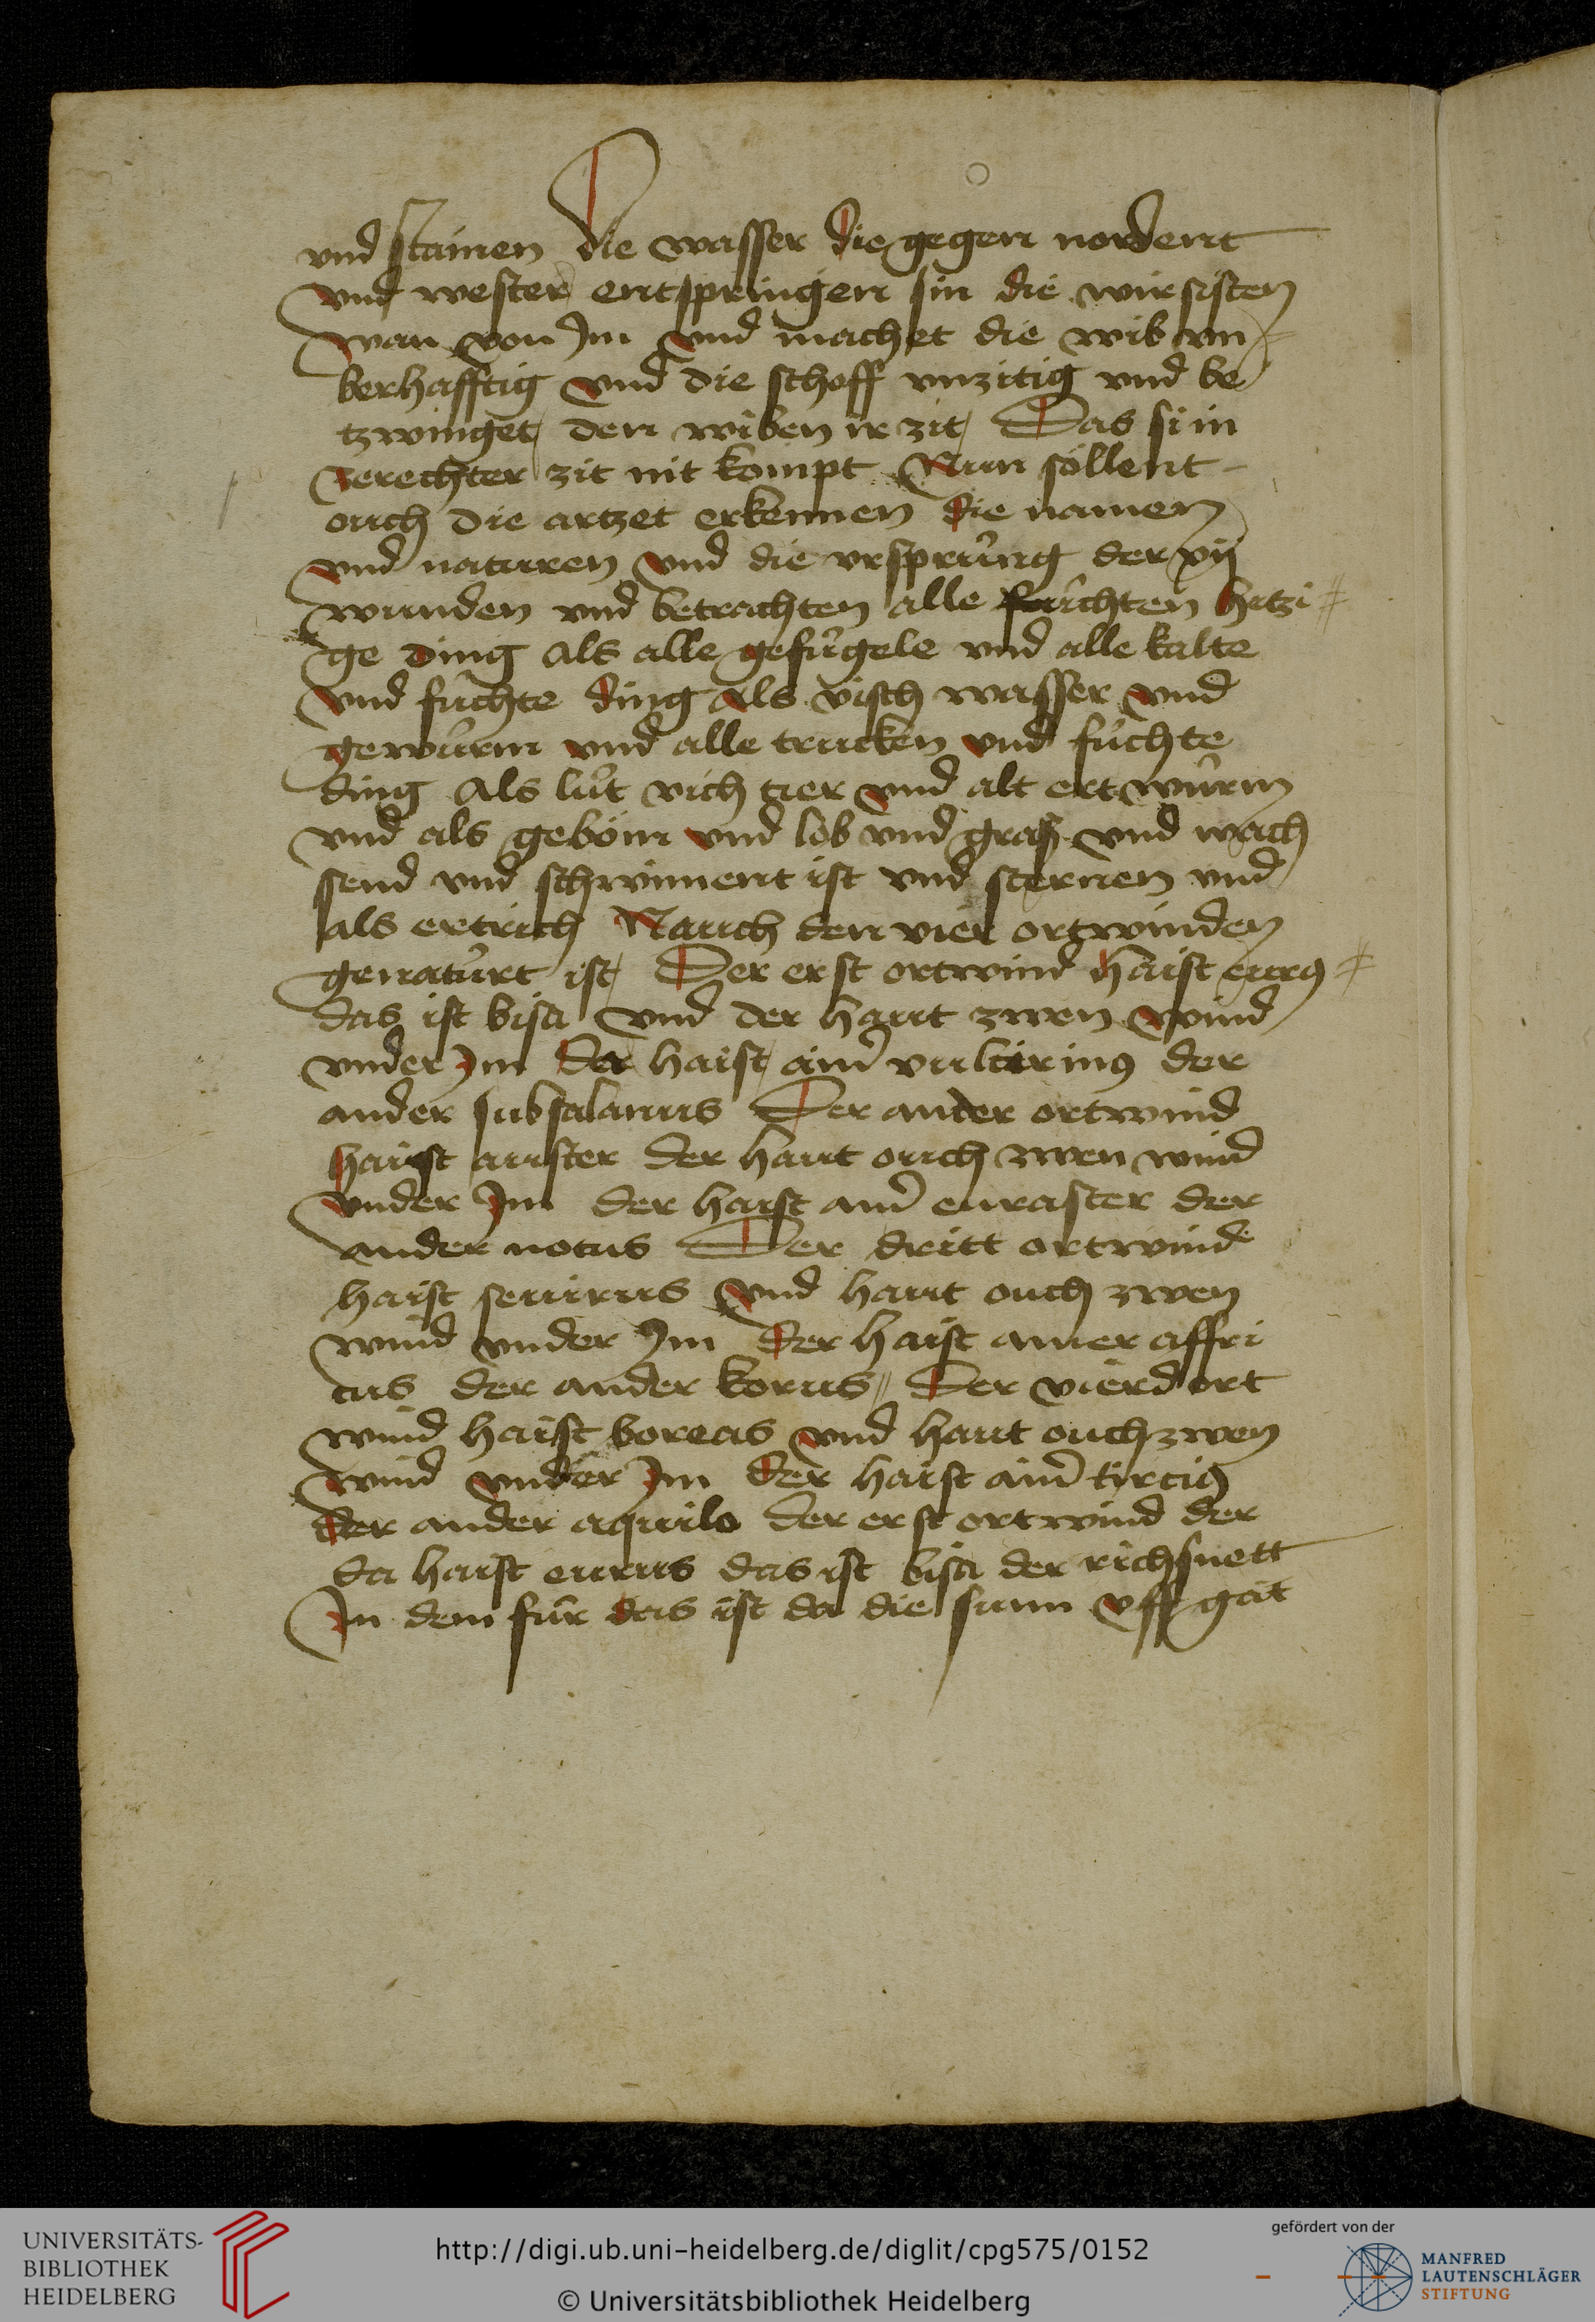 vnd stainen Die wasser die gegen nordent
vnd wester entspringen sin die wirsisten
wan von Jm vnd machet die wib vn
berhafftig vnd die schoff vnzitig vnd be
tzwinget den wiben ir zit Das si in
rerechter zit nit kompt Nun söllent
ouch die artzet erkennen die namen
vnd naturen vnd die vrsprung der xij
wunden vnd betrachten alle hitzi
ge ding als alle gefu̇gele vnd alle kalte
vnd fuchte ding als visch wasser vnd
gewürm vnd alle trucken vnd fuchte
ding Als lu̇t vich tier vnd alt ertwürm
vnd als geböm vnd lob vnd gras vnd wach
send vnd schwinent ist vnd sternen vnd
als ertrich Nauch den vier ortwinden
genatürt ist Der erst ortwind haist eurus
das ist bisa vnd der haut zwen wind
vnder Jm Der haist ainer vulturinus der
ander subsalanus Der ander ortwind
haist auster der haut ouch zwen wind
vnder Jm der haist ainer euraster der
ander notus Der dritt ortwinde
haist seuirus vnd haut ouch zwen
wind vnder Jm der haist ainer affri
cus der ander korus Der vierd ort
wind haist boreas vnd haut ouch zwen
wind vnder Jm der haist ainer tircius
der ander aquilo der erst ortwind der
da haist eurus das ist bisa der richsnett
Jn dem fur das ist da die sunn vff gat
UNIVERSITÄTS-
BIBLIOTHEK
HEIDELBERG
http://digi.ub.uni-heidelberg.de/diglit/cpg575/0152
© Universitätsbibliothek Heidelberg
gefördert von der
MANFRED
LAUTENSCHLÄGER
STIFTUNG